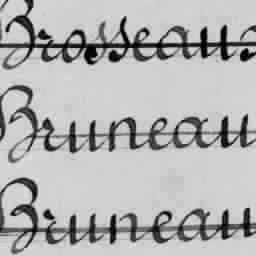 Brosseau
Bruneau
Bruneau